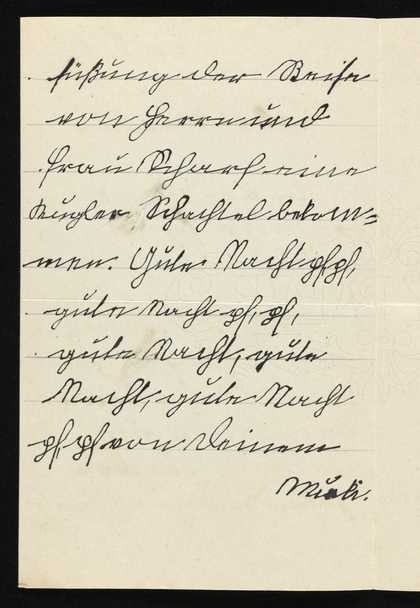 süßung der Reise
von Herrn und
Frau Scharf eine
Kugler Schachtel bekom=
men. Gute Nacht pf, pf,
gute Nacht pf, pf,
gute Nacht, gute
Nacht, gute Nacht
pf, pf von Deinem
Muki.